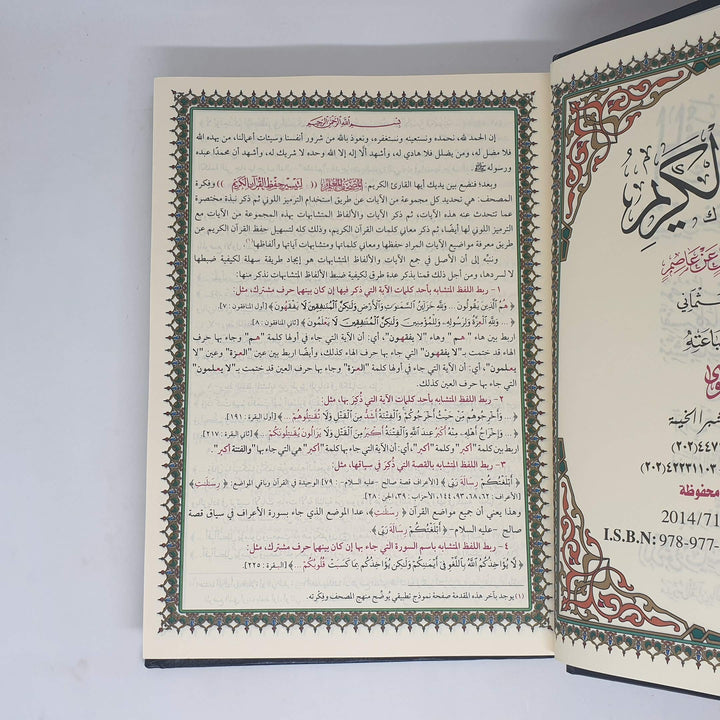 بسم الله الرحمن الرحيم
إن الحمد لله، نحمده ونستعينه ونستغفره، ونعوذ بالله من شرور أنفسنا وسيئات أعمالنا، من يهده الله
فلا مضل له، ومن يضلل فلا هادي له، وأشهد ألَّا إله إلا الله وحده لا شريك له، وأشهد أن محمدًا عبده
ورسوله ﷺ.
وبعد؛ فنضع بين يديك أيها القارئ الكريم: (( لتيسير حفظ القرآن الكريم )) وفكرة
المصحف: هي تحديد كل مجموعة من الآيات عن طريق استخدام الترميز اللوني ثم ذكر نبذة مختصرة
عما تتحدث عنه هذه الآيات، ثم ذكر الآيات والألفاظ المتشابهات بهذه المجموعة من الآيات مع
الترميز اللوني لها أيضًا، ثم ذكر معاني كلمات القرآن الكريم، وذلك كله لتسهيل حفظ القرآن الكريم عن
طريق معرفة مواضيع الآيات المراد حفظها ومعاني كلماتها ومتشابهات آياتها وألفاظها.(١)
وننبِّه إلى أن الأصل في جمع الآيات والألفاظ المتشابهات هو إيجاد طريقة سهلة لكيفية ضبطها
لا لسردها، ومن أجل ذلك قمنا بذكر عدة طرق لكيفية ضبط الألفاظ المتشابهات نذكر منها:
١ - ربط اللفظ المتشابه بأحد كلمات الآية التي ذكر فيها إن كان بينهما حرف مشترك، مثل:
﴿هُمُ ٱلَّذِينَ يَقُولُونَ ... وَلِلَّهِ خَزَآئِنُ ٱلسَّمَٰوَٰتِ وَٱلْأَرْضِ وَلَٰكِنَّ ٱلْمُنَٰفِقِينَ لَا يَفْقَهُونَ﴾ [أول المنافقون: ٧].
﴿... وَلِلَّهِ ٱلْعِزَّةُ وَلِرَسُولِهِۦ وَلِلْمُؤْمِنِينَ وَلَٰكِنَّ ٱلْمُنَٰفِقِينَ لَا يَعْلَمُونَ﴾ [ثاني المنافقون: ٨].
اربط بين هاء "هم" وهاء "لا يفقهون"، أي: أن الآية التي جاء في أولها كلمة "هم" وجاء بها حرف
الهاء قد ختمت بـ"لا يفقهون" التي جاء بها حرف الهاء كذلك، وأيضًا اربط بين عين "العزة" وعين "لا
يعلمون"، أي: أن الآية التي جاء في أولها كلمة "العزة" وجاء بها حرف العين قد ختمت بـ"لا يعلمون"
التي جاء بها حرف العين كذلك.
٢ - ربط اللفظ المتشابه بأحد كلمات الآية التي ذُكِرَ بها، مثل:
﴿... وَأَخْرِجُوهُم مِّنْ حَيْثُ أَخْرَجُوكُمْ وَٱلْفِتْنَةُ أَشَدُّ مِنَ ٱلْقَتْلِ وَلَا تُقَٰتِلُوهُمْ ...﴾ [أول البقرة: ١٩١].
﴿... وَإِخْرَاجُ أَهْلِهِۦ مِنْهُ أَكْبَرُ عِندَ ٱللَّهِ وَٱلْفِتْنَةُ أَكْبَرُ مِنَ ٱلْقَتْلِ وَلَا يَزَالُونَ يُقَٰتِلُونَكُمْ ...﴾ [ثاني البقرة: ٢١٧].
اربط بين كلمة "أكبر" وكلمة "أكبر"، أي: أن الآية التي جاء بها كلمة "أكبر" هي التي جاء بها "والفتنة أكبر".
٣ - ربط اللفظ المتشابه بالقصة التي ذُكِرَ في سياقها، مثل:
﴿أَبْلَغْتُكُمْ رِسَالَةَ رَبِّى﴾ [الأعراف قصة صالح -عليه السلام-: ٧٩] الوحيدة في القرآن وباقي المواضع: ﴿رِسَٰلَٰتِ﴾
[الأعراف: ٦٢، ٦٨، ٩٣، ١٤٤، الأحزاب: ٣٩، الجن: ٢٨].
وهذا يعني أن جميع مواضع القرآن ﴿رِسَٰلَٰتِ﴾، عدا الموضع الذي جاء بسورة الأعراف في سياق قصة
صالح -عليه السلام- ﴿أَبْلَغْتُكُمْ رِسَالَةَ رَبِّى﴾
٤ - ربط اللفظ المتشابه باسم السورة التي جاء بها إن كان بينهما حرف مشترك، مثل:
﴿لَّا يُؤَاخِذُكُمُ ٱللَّهُ بِٱللَّغْوِ فِىٓ أَيْمَٰنِكُمْ وَلَٰكِن يُؤَاخِذُكُم بِمَا كَسَبَتْ قُلُوبُكُمْ ...﴾ [البقرة: ٢٢٥].
(١) يوجد بآخر هذه المقدمة صفحة نموذج تطبيقي يُوضِّح منهج المصحف وفكرته.
الكريم
عن عاصم
محفوظة
2014/71
I.S.B.N: 978-977-